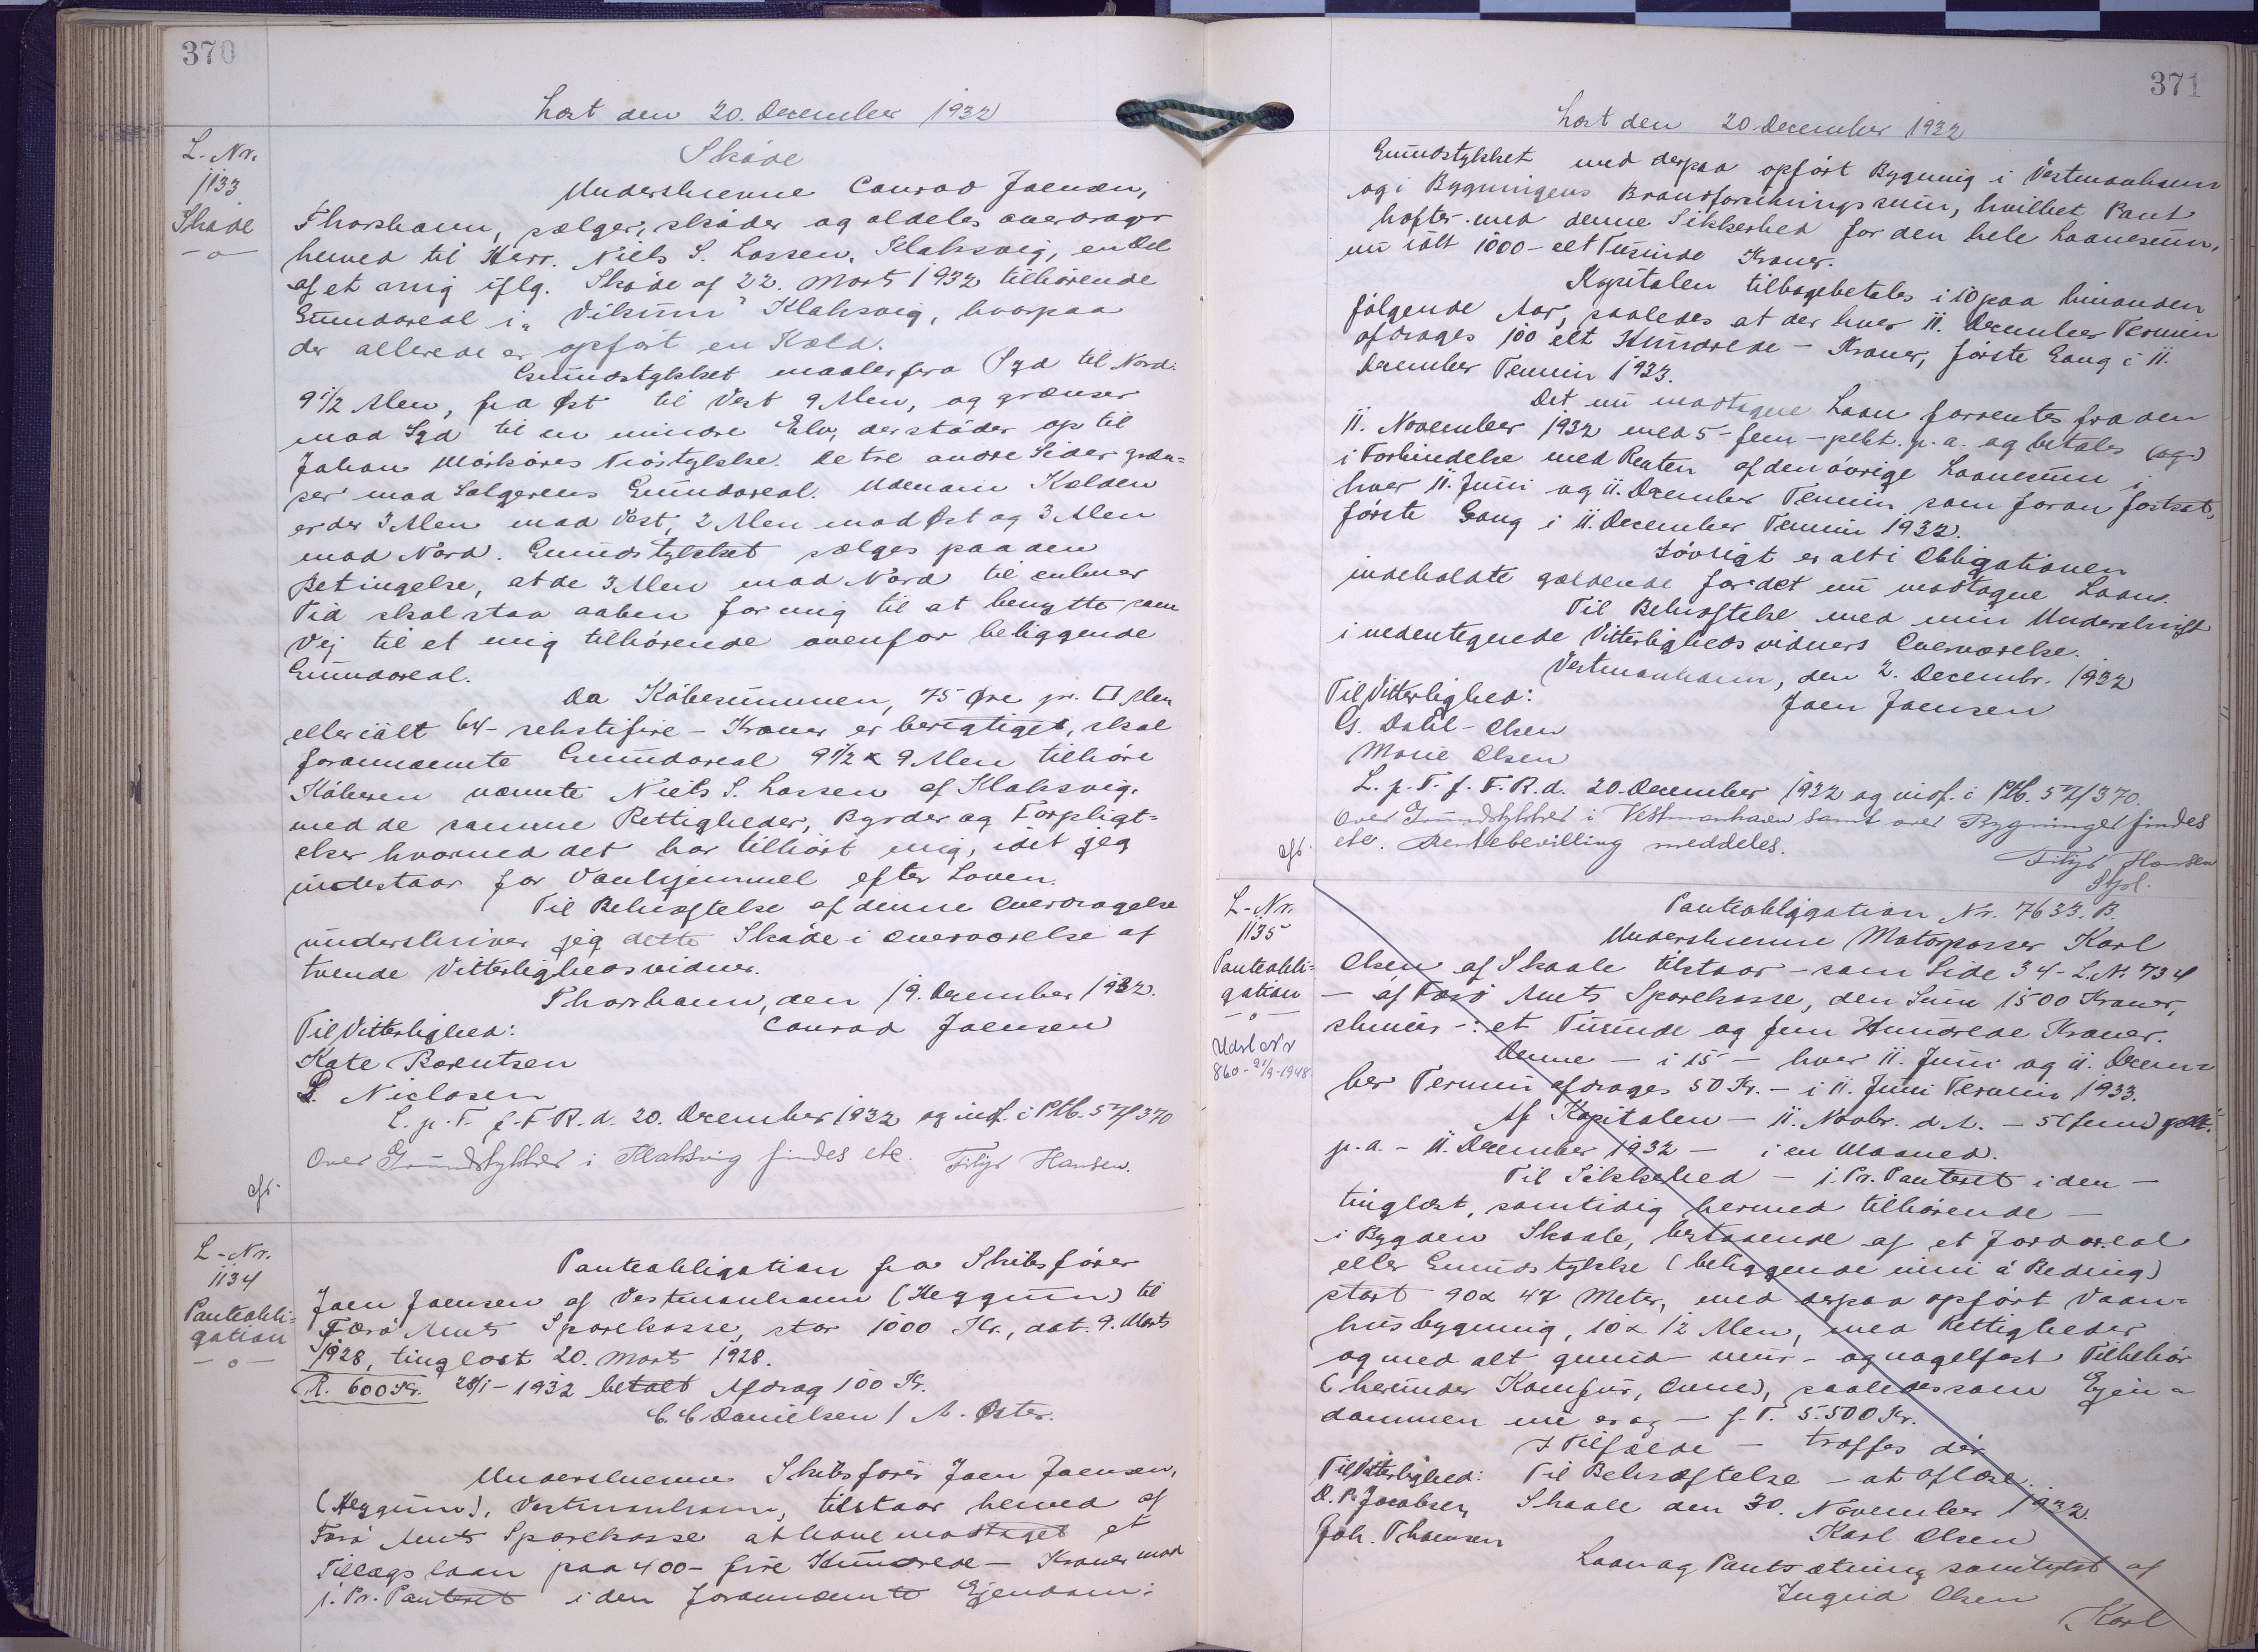 370
Læst den 20. December 1932
L-Nr.
1133
Skøde
Skøde
Underskrevne Conrad Joensen,
Thorshavn, sælger, skøder og aldeles overdrager
herved til Herr. Niels S. Lassen, Klaksvig, en Del
af et mig iflg. Skøde af 22. Marts 1932 tilhørende
Grundareal i „Vikum" Klaksvig, hvorpaa
der allerede er opført en Kæld.
Grundstykket maaler fra Syd til Nord:
9 1/2 Alen, fra Øst til Vest 9 Alen, og grænser
mod Syd til en mindre Elv, der støder op til
Johan Mørkøres Trøstykke. De tre andre Sider græn=
ser mod Sælgerens Grundareal. Udenom Kælden
er der 3 Alen mod Vest, 2 Alen mod Øst og 3 Alen
mod Nord. Grundstykket sælges paa den
Betingelse, at de 3 Alen mod Nord til enhver
Tid skal staa aaben for mig til at benytte som
Vej til et mig tilhørende ovenfor beliggende
Grundareal.
Da Købesummen, 75 Øre pr. □ Alen
eller ialt 64 - sekstifire - Kroner er berigtiget, skal
forannævnte Grundareal 9 1/2 x 9 Alen tilhøre
Køberen nævnte Niels S. Lassen af Klaksvig,
med de samme Rettigheder, Byrder og Forpligt=
elser hvormed det har tilhørt mig, idet jeg
indestaar for Vanhjemmel efter Loven.
Til Bekræftelse af denne Overdragelse
underskriver jeg dette Skøde i Overværelse af
tvende Vitterlighedsvidner.
Thorshavn, den 19. December 1932.
Til Vitterlighed: Conrad Joensen
Kate Berentsen
D. Niclasen
L. p. T. f. F. R. d. 20. December 1932 og indf. i Ptb. 57/370
Over Grundstykket i Klaksvig findes etc. Filip Hansen.
cft.
L-Nr.
1134
Panteobli=
gation
Panteobligation fra Skibsfører
Joen Joensen af Vestmanhavn (Heygum) til
Færø Amts Sparekasse, stor 1000 Kr., dat. 9. Marts
1928, tinglæst 20. Marts 1928.
R. 600 Kr. 28/1 - 1932 betalt Afdrag 100 Kr.
C. C. Danielsen / A. Øster.
Underskrevne Skibsfører Joen Joensen,
(Heygum), Vestmanhavn, tilstaar herved af
Færø Amts Sparekasse at have modtaget et
Tillægslaan paa 400 - fire Hundrede - Kroner mod
1. Pr. Panteret i den forannævnte Ejendom:
371
Læst den 20 December 1932
Grundstykket med derpaa opført Bygning i Vestmanhavn
og i Bygningens Brandforsikringssum, hvilket Pant
hæfter med denne Sikkerhed for den hele Laanesum,
nu ialt 1000 - et Tusinde Kroner.
Kapitalen tilbagebetales i 10 paa hinanden
følgende Aar, saaledes at der hver 11. December Termin
afdrages 100 et Hundrede - Kroner, første Gang i 11.
December Termin 1933.
Det nu modtagne Laan forrentes fra den
11. November 1932 med 5 - fem - pCt. p. a. og betales (og)
i Forbindelse med Renten af den øvrige Laanesum i
hver 11. Juni og 11. December Termin som foran fastsat,
første Gang i 11. December Termin 1932.
Iøvrigt er alt i Obligationen
indeholdte gældende for det nu modtagne Laan.
Til Bekræftelse med min Underskrift
i nedentegnede Vitterlighedsvidners Overværelse.
Vestmanhavn, den 2. Decembr. 1932
Til Vitterlighed: Joen Joensen
G. Dahl-Olsen
Marie Olsen
L. p. T. f. F. R. d. 20. December 1932 og indf. i Ptb. 57/370.
Over Grundstykket i Vestmanhavn samt over Bygninger findes
etc. Rentebevilling meddeles.
Filip Hansen
cft.
L-Nr.
1135
Panteobli=
gation
Udsl Nr
860 - 21/9 - 1948.
Panteobligation Nr. 7633. B.
Underskrevne Motorpasser Karl
Olsen af Skaale tilstaar - som Side 34 - L. Nr. 734
- af Færø Amts Sparekasse, den Sum 1500 Kroner,
skriver -: et Tusinde og fem Hundrede Kroner.
Denne - i 15 - hver 11. Juni og 11. Decem=
ber Termin afdrages 50 Kr. - i 11. Juni Termin 1933.
Af Kapitalen - 11. Novbr. d. A. - 5 (fem) pCt.
p. a. - 11. December 1932 - i en Maaned.
Til Sikkerhed - 1. Pr. Panteret i den -
tinglæst, samtidig hermed tilhørende -
i Bygden Skaale, bestaaende af et Jordareal
eller Grundstykke (beliggende inni á Beding)
stort 90 x 47 Meter, med derpaa opført Vaan=
husbygning, 10 x 12 Alen, med Rettigheder
og med alt grund- mur- og nagelfast Tilbehør
(herunder Komfur, Ovne), saaledes som Ejen=
dommen nu er og - f. T. 5.500 Kr.
I Tilfælde - træffes der
Til Vitterlighed: Til Bekræftelse - at aflæse.
D. P. Jacobsen Skaale den 30. November 1932
Joh. Thomsen Karl Olsen
Laan og Pantsætning samtykt af
Ingrid Olsen
Karl